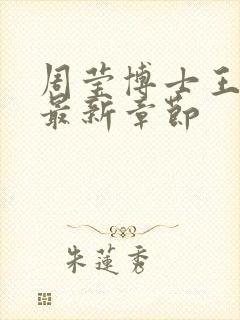 周莹博士王
最新章节
朱莲秀